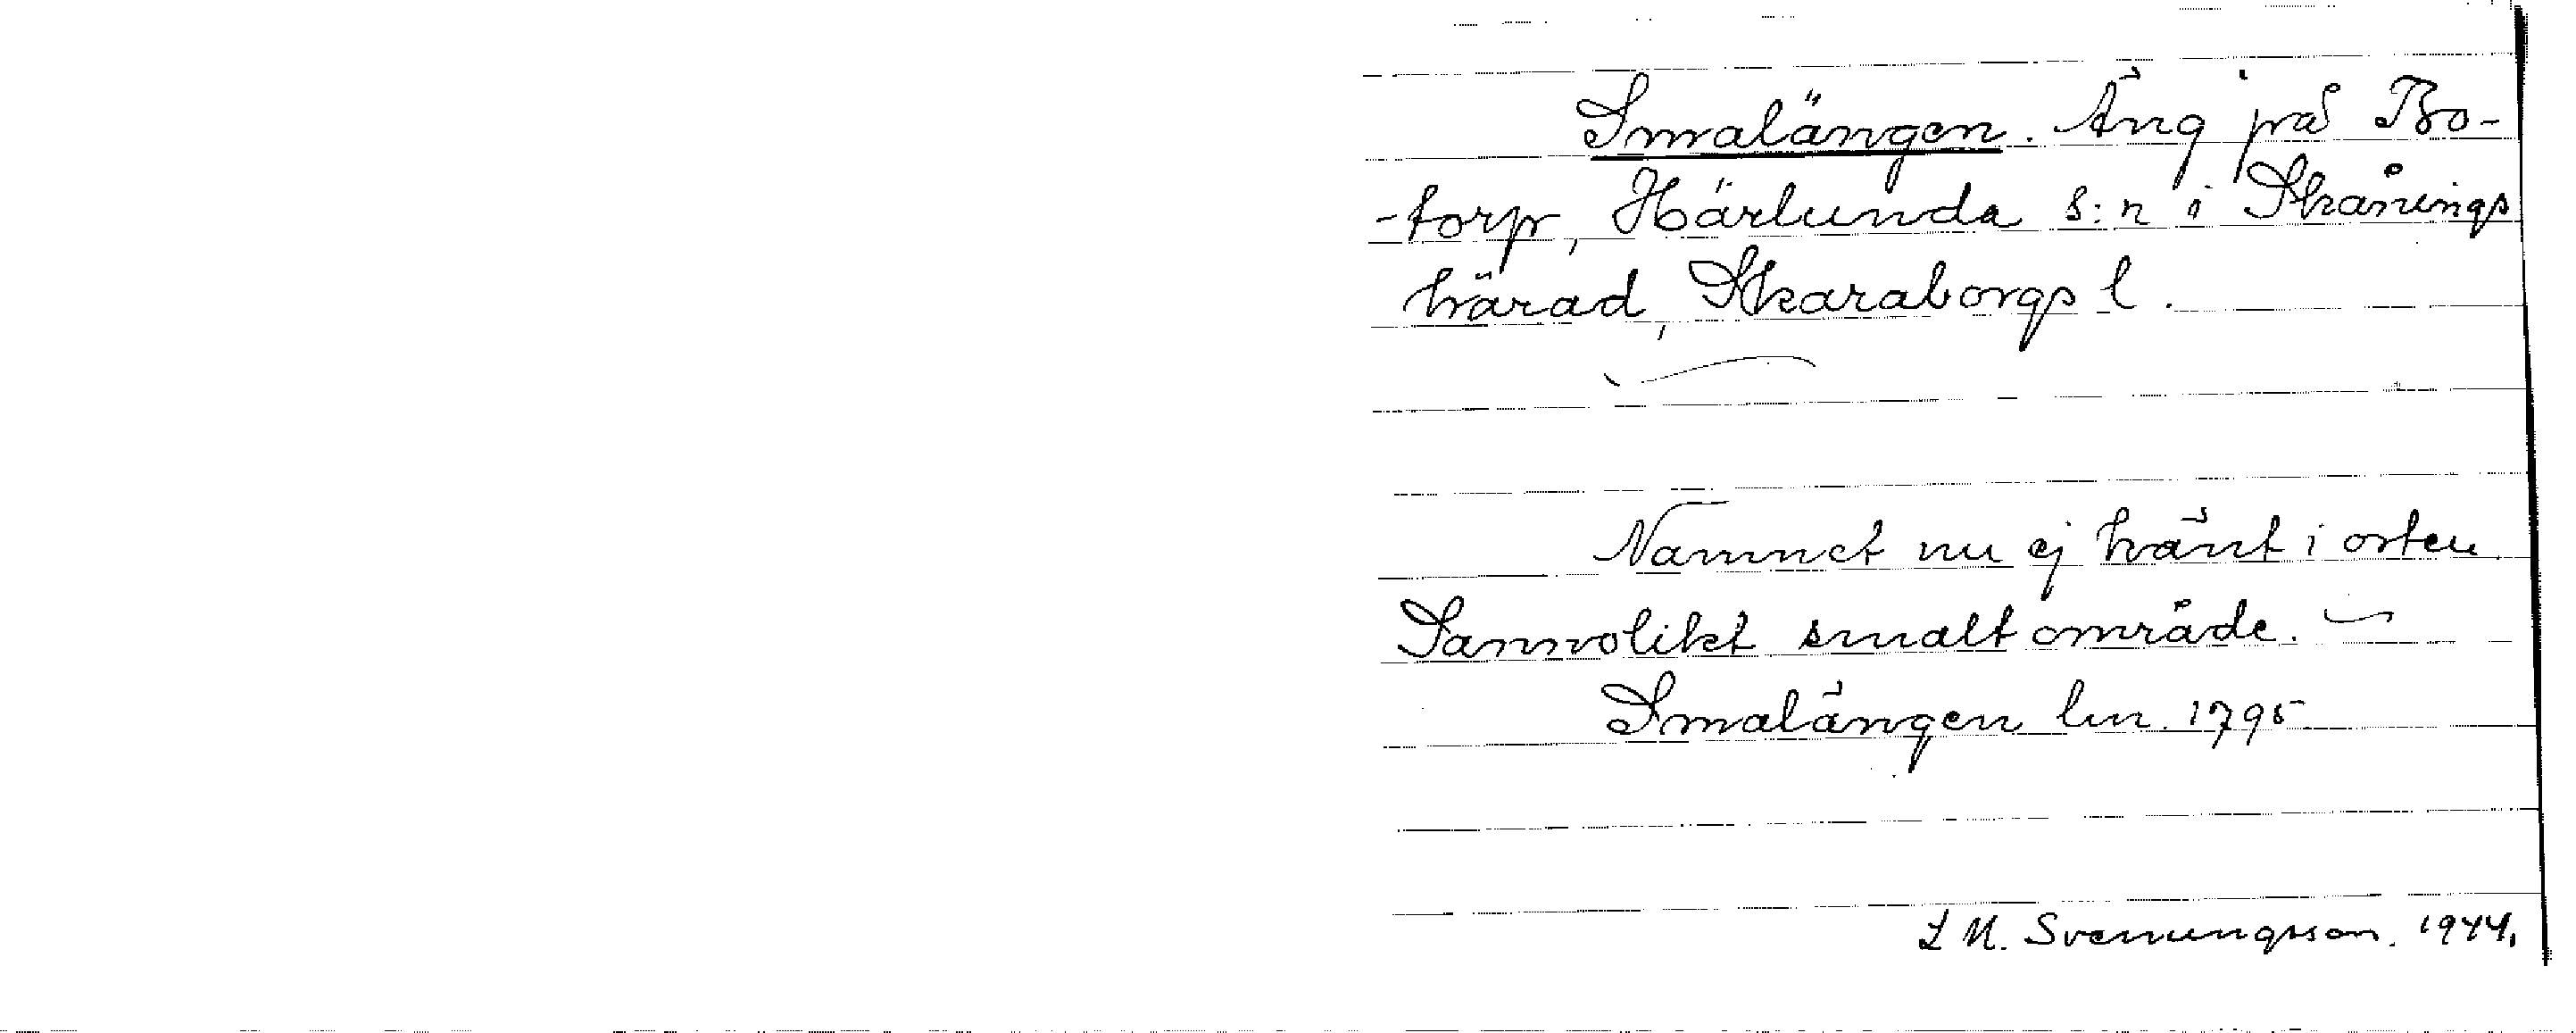 Smalängen. Äng på Bo-
-torp, Härlunda s:n i Skånings
härad, Skaraborgs l.
Namnet nu ej känt i orten.
Sannolikt smalt område.
Smalängen lm. 1795
L M. Svenungsson. 1944.